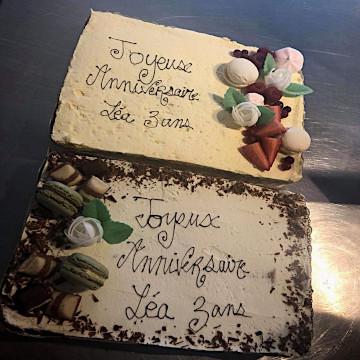 Joyeuse
Anniversaire
Léa 3ans
Joyeux
Anniversaire
Léa 3ans